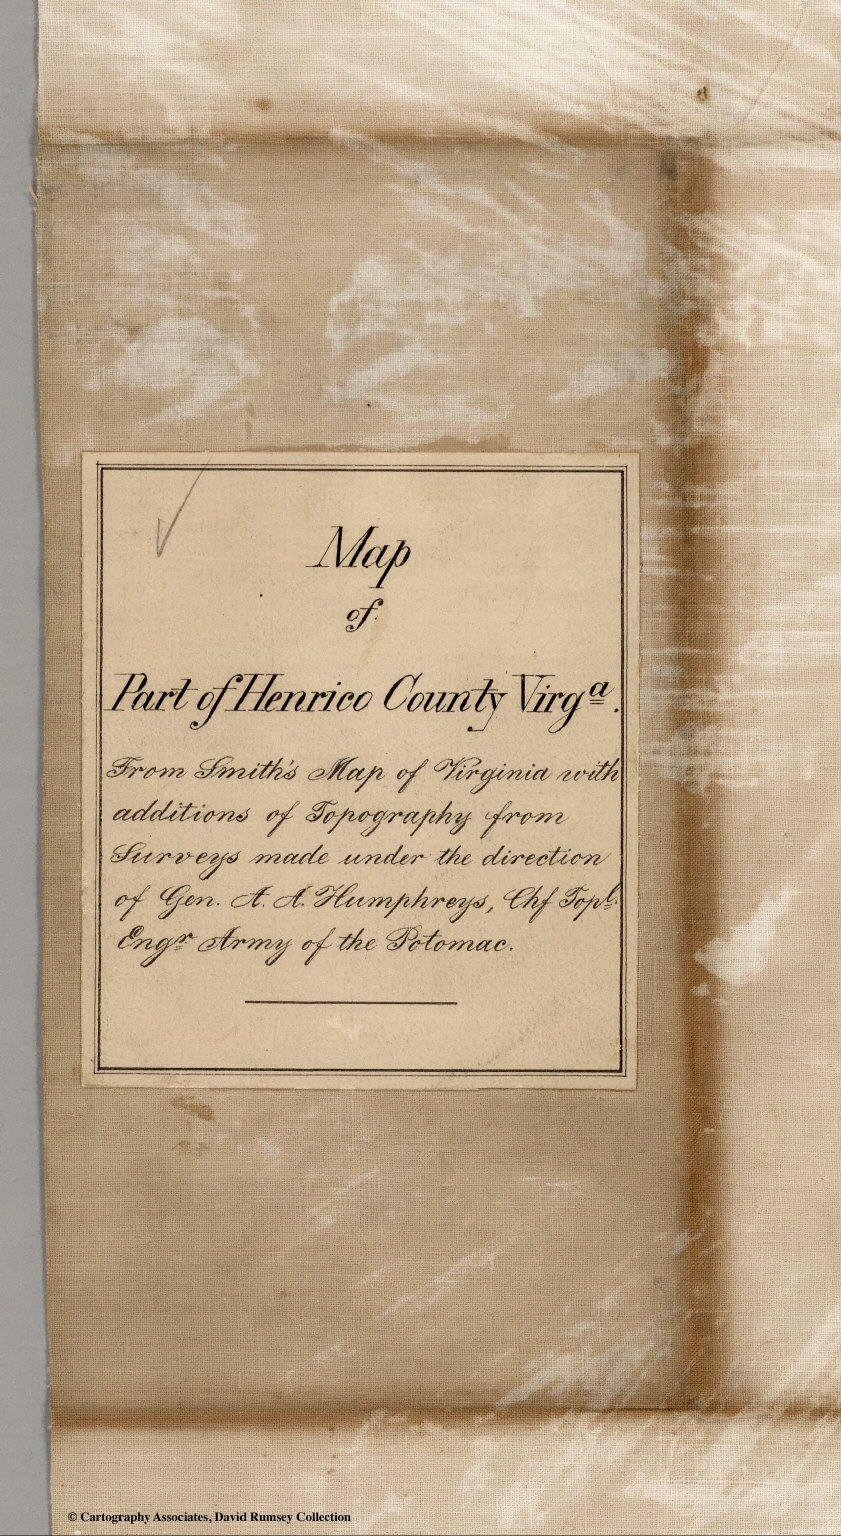 Map
of
Part of Henrico County Virgª.
From Smith's Map of Virginia with
additions of Topography from
Surveys made under the direction
of Gen. A. A. Humphreys, Chf Topl.
Engr Army of the Potomac.
© Cartography Associates, David Rumsey Collection